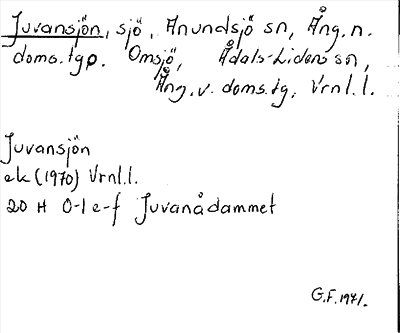 Juvansjön, sjö, Anundsjö sn, Ång. n.
doms.tgp. Omsjö, Ådals-Lidens sn,
Ång. v. doms.tg, Vrnl.l.
Juvansjön
ek (1970) Vrnl.l.
20 H 0-1 e-f Juvanådammet
G.F. 1971.